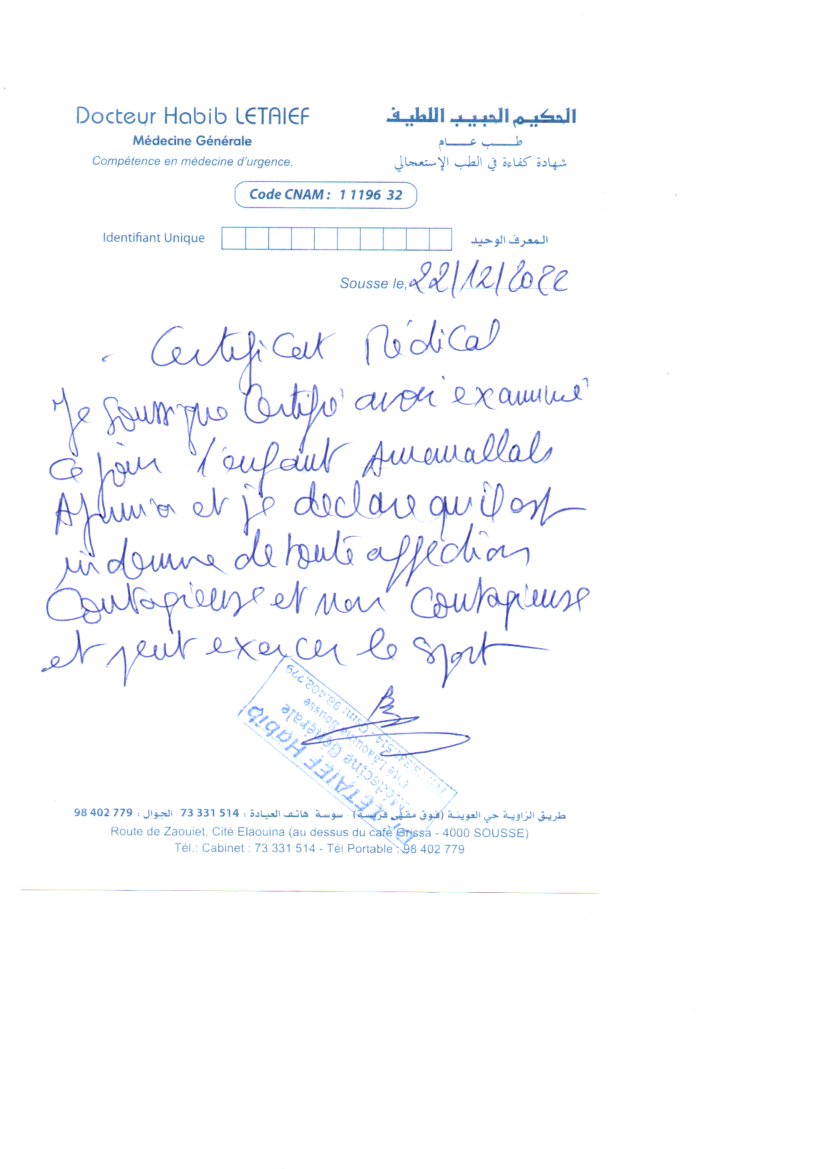 Docteur Habib LETAIEF
الحكيم الحبيب اللطيف
Médecine Générale
طـــب عـــام
Compétence en médecine d'urgence.
شهادة كفاءة في الطب الإستعجالي
Code CNAM : 1 1196 32
Identifiant Unique
المعرف الوحيد
Sousse le, 22/12/2022
Certificat Médical
Je soussigné Certifié avoir examiné
ce jour l'enfant Amamallah
et je declare qu'il est
indemne de toute affections
Contagieuse et non contagieuse
et peut exercer le sport
Dr. LETAIEF Habib
Médecine Générale
Cité Elaouina Sousse
98.402.779
طريق الزاوية حي العوينة (فوق مقهى قريصة) - سوسة هاتف العيادة : 73 331 514 الجوال : 98 402 779
Route de Zaouiet, Cité Elaouina (au dessus du café Grissa - 4000 SOUSSE)
Tél.: Cabinet : 73 331 514 - Tél.Portable : 98 402 779